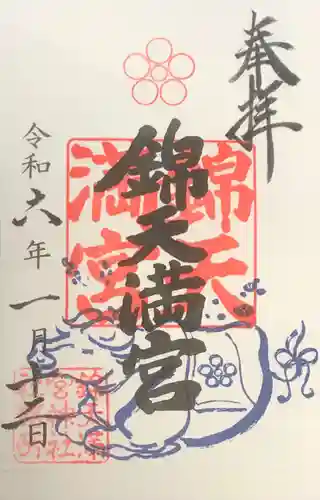 奉拝
錦天満宮
錦天
満宮
令和六年一月十二日